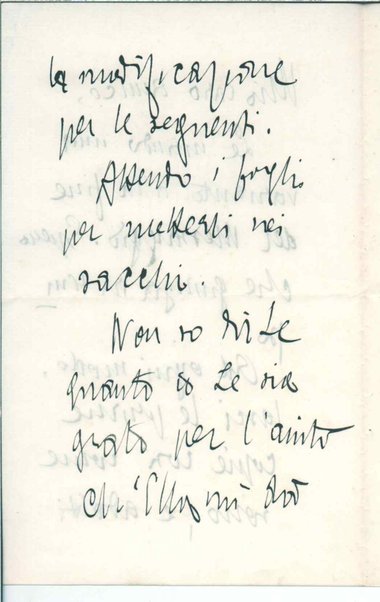 la modificazione
per le seguenti.
Attendo i fogli
per metterli nei
sacchi.
Non so dirLe
quanto io Le sia
grato per l'aiuto
ch'Ella mi dà